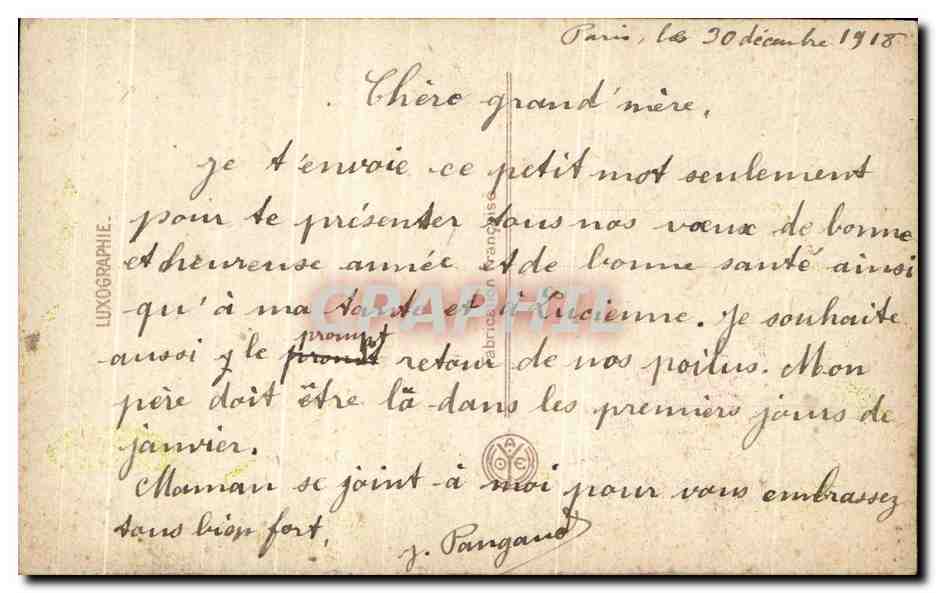 Paris, le 30 décembre 1918
Chère grand'mère,
je t'envoie ce petit mot seulement
pour te présenter tous nos vœux de bonne
et heureuse année et de bonne santé ainsi
qu'à ma tante et à Lucienne. Je souhaite
prompt
aussi y le retour de nos poilus. Mon
père doit être là dans les premiers jours de
janvier.
Maman se joint à moi pour vous embrassez
tous bien fort,
J. Pangaud
LUXOGRAPHIE.
Fabrication Française
CPAPHIL